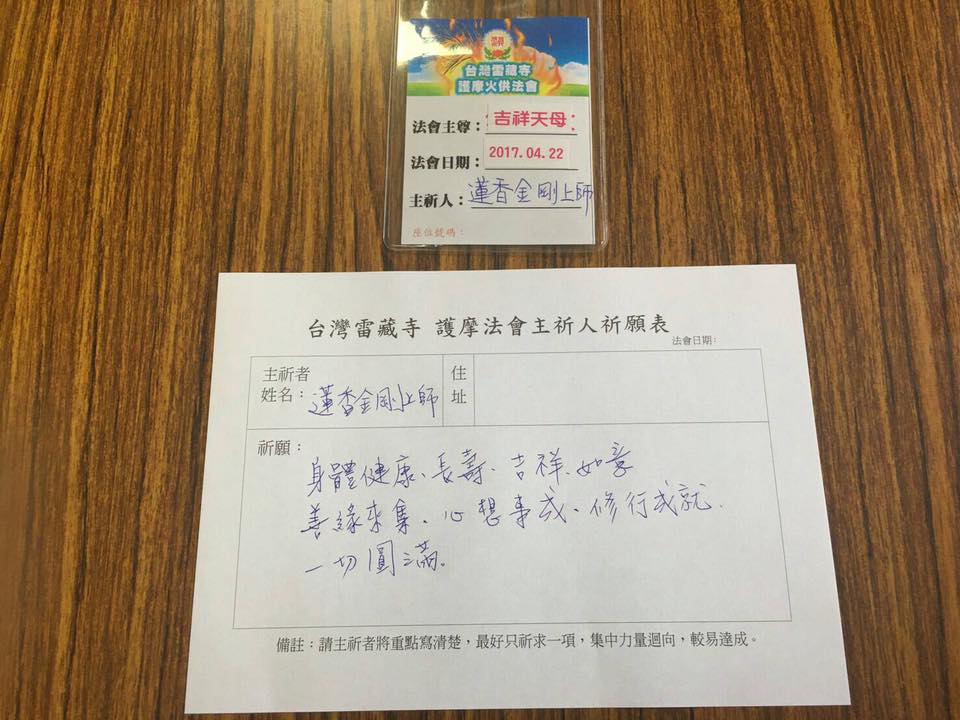 台灣雷藏寺
護摩火供法會
法會主尊：吉祥天母
法會日期：2017.04.22
主祈人：蓮香金剛上師
座位號碼：
台灣雷藏寺 護摩法會主祈人祈願表
法會日期：
主祈者
姓名：蓮香金剛上師
住
址
祈願：
身體健康、長壽、吉祥、如意
善緣來集、心想事成、修行成就、
一切圓滿。
備註：請主祈者將重點寫清楚，最好只祈求一項，集中力量迴向，較易達成。